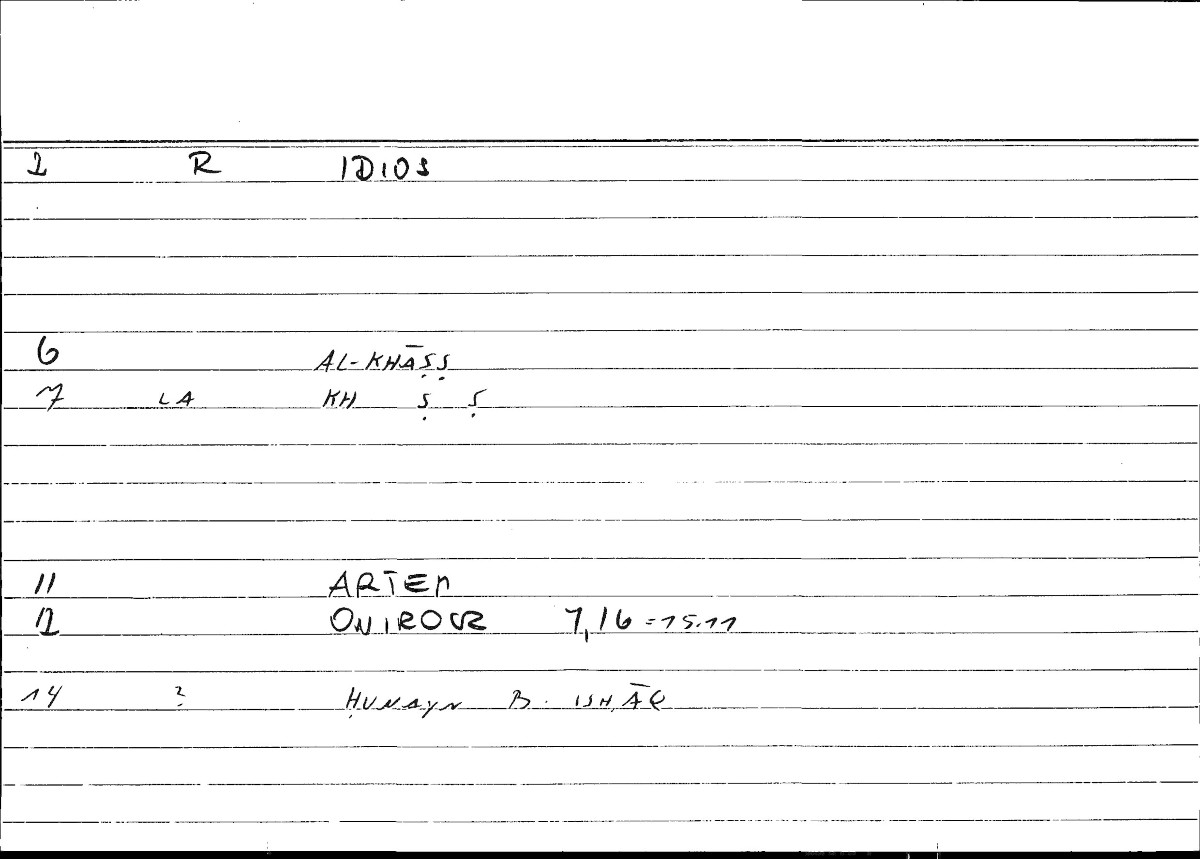 1 R IDIOS
6 AL-KHĀṢṢ
7 LA KH Ṣ Ṣ
11 ARTEM
12 ONIROCR 7,16 = 15.11
14 ? ḤUNAYN B. ISḤĀQ